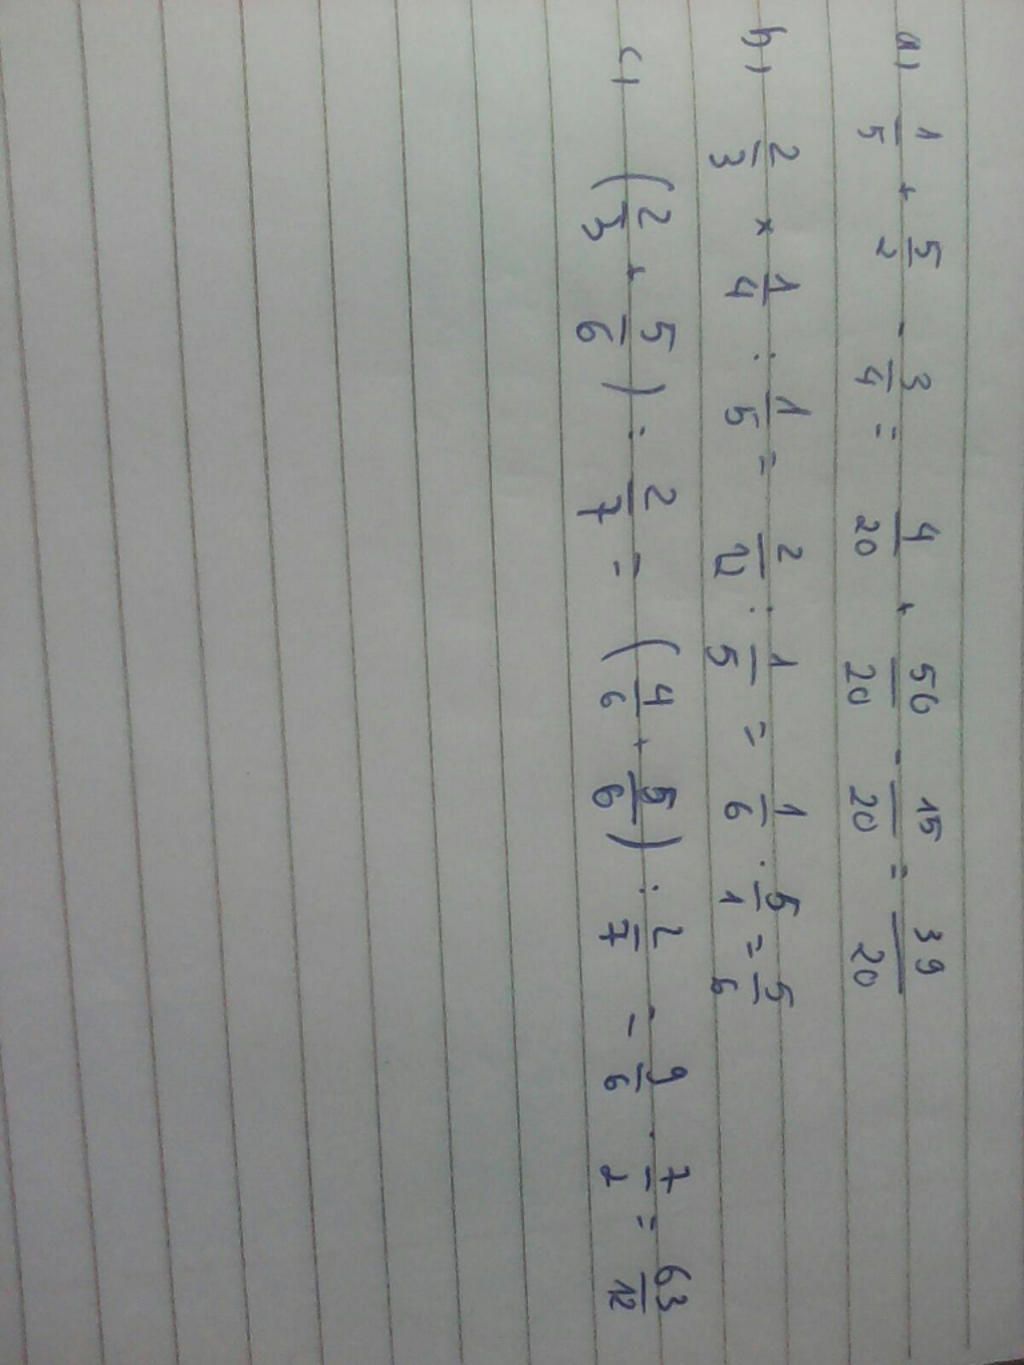 a) 1/5 + 5/2 - 3/4 = 4/20 + 50/20 - 15/20 = 39/20
b) 2/3 × 1/4 : 1/5 = 2/12 : 1/5 = 1/6 · 5/1 = 5/6
c) (2/3 + 5/6) : 2/7 = (4/6 + 5/6) : 2/7 = 9/6 · 7/2 = 63/12